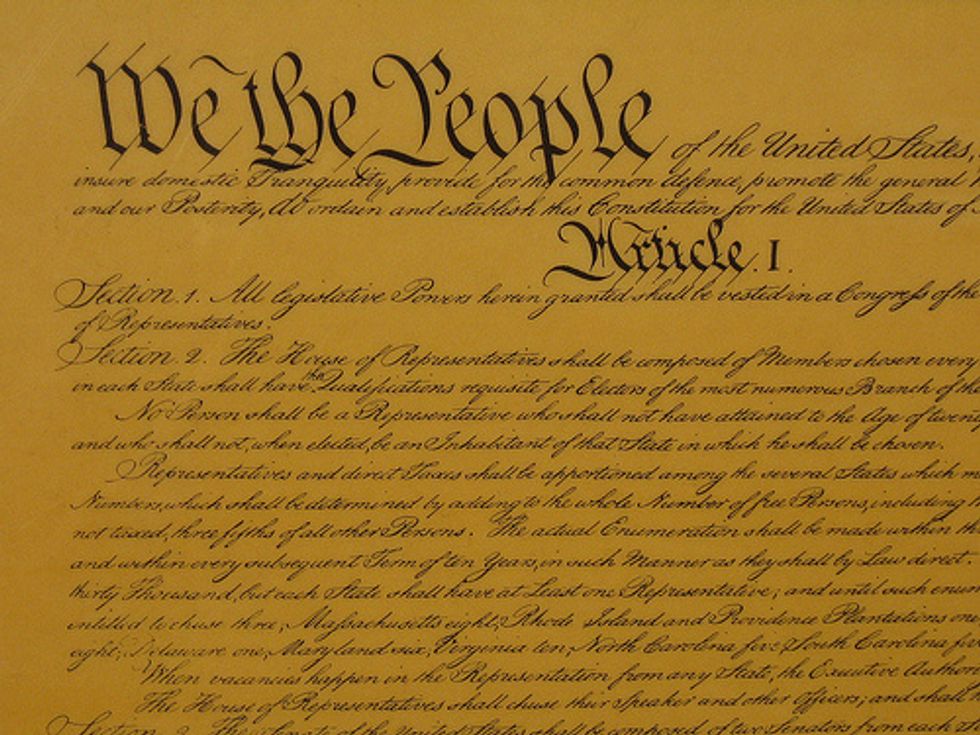 We the People of the United States,
insure domestic Tranquility, provide for the common defence, promote the general
and our Posterity, do ordain and establish this Constitution for the United States of
Article. I.
Section. 1. All legislative Powers herein granted shall be vested in a Congress of the
of Representatives.
Section. 2. The House of Representatives shall be composed of Members chosen every
in each State shall have the Qualifications requisite for Electors of the most numerous Branch of the
No Person shall be a Representative who shall not have attained to the Age of twenty
and who shall not, when elected, be an Inhabitant of that State in which he shall be chosen.
Representatives and direct Taxes shall be apportioned among the several States which
Numbers, which shall be determined by adding to the whole Number of free Persons, including
not taxed, three fifths of all other Persons. The actual Enumeration shall be made within
and within every subsequent Term of ten Years, in such Manner as they shall by Law direct.
thirty Thousand, but each State shall have at Least one Representative; and until such enu
intitled to chuse three, Massachusetts eight, Rhode Island and Providence Plantations one
eight, Delaware one, Maryland six, Virginia ten, North Carolina five, South Carolina five
When vacancies happen in the Representation from any State, the Executive Author
The House of Representatives shall chuse their Speaker and other Officers; and shall
Section. 3. The Senate of the United States shall be composed of two Senators from each